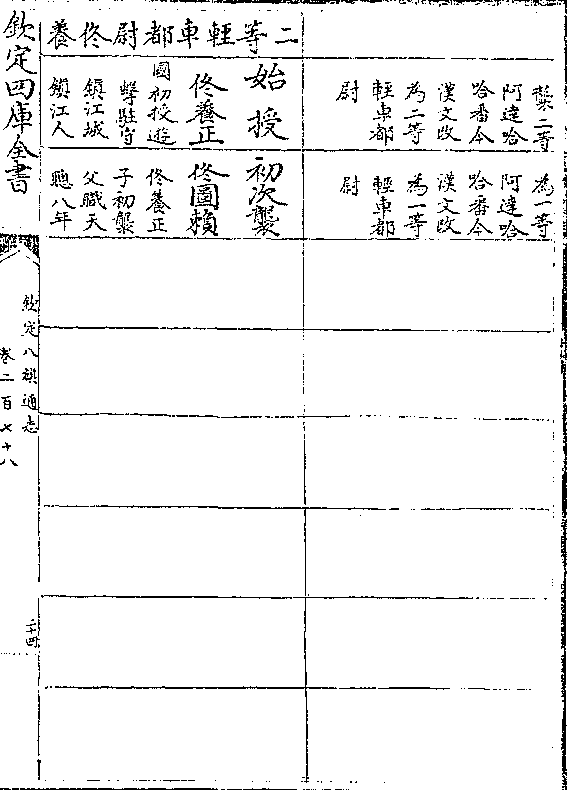 襲二等
阿達哈
哈番今
漢文改
為二等
輕車都
尉
為一等
阿達哈
哈番今
漢文改
為一等
輕車都
尉
二等輕車都尉佟養
始授
佟養正
國初授遊
擊駐守
鎮江城
鎮江人
初次襲
佟圖賴
佟養正
子初襲
父職天
聰八年
欽定四庫全書
欽定八旗通志
卷二百七十八
二十四